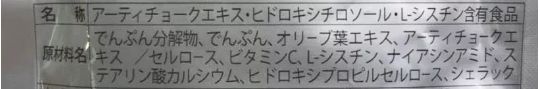 名 称 アーティチョークエキス・ヒドロキシチロソール・L-シスチン含有食品
原材料名 でんぷん分解物、でんぷん、オリーブ葉エキス、アーティチョークエ
キス ／セルロース、ビタミンC、L-シスチン、ナイアシンアミド、ス
テアリン酸カルシウム、ヒドロキシプロピルセルロース、シェラック